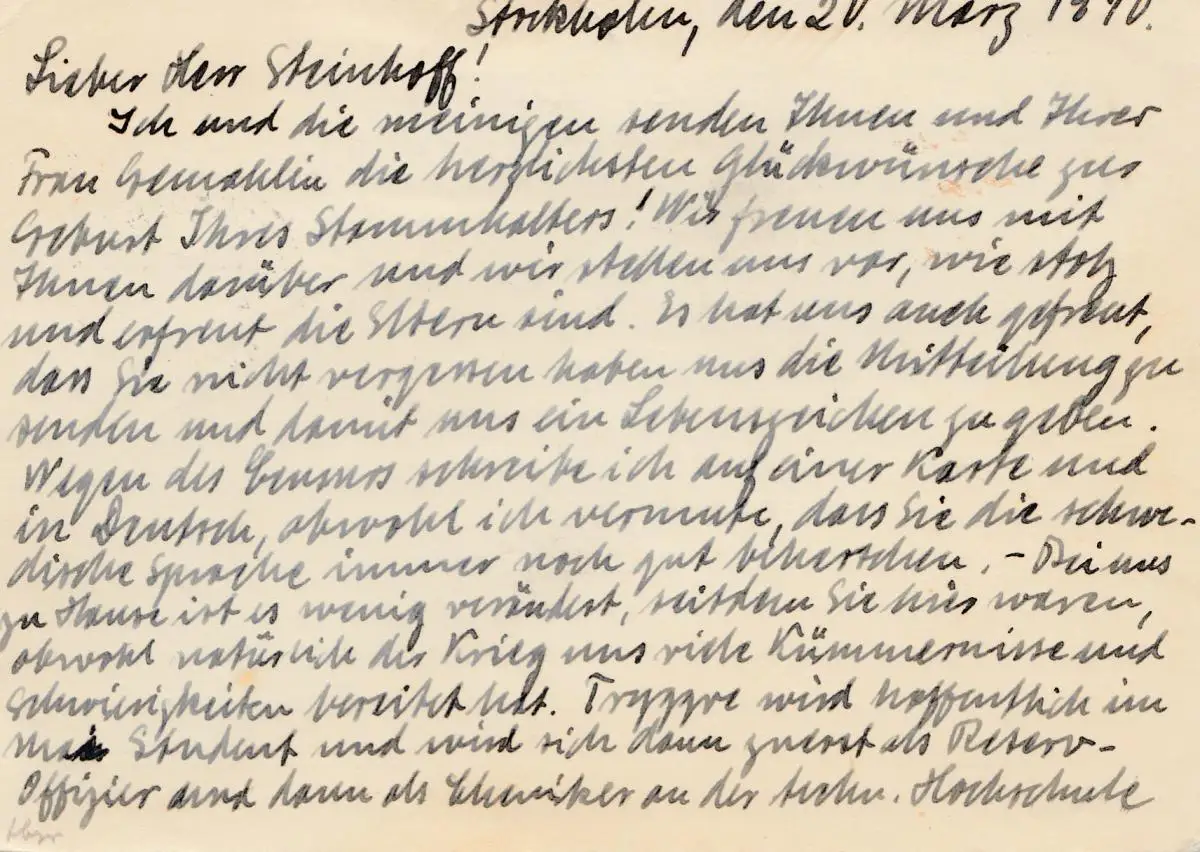 Stockholm, den 20. März 1940.
Lieber Herr Steinhoff!
Ich und die meinigen senden Ihnen und Ihrer
Frau Gemahlin die herzlichsten Glückwünsche zur
Geburt Ihres Stammhalters! Wir freuen uns mit
Ihnen darüber und wir stellen uns vor, wie stolz
und erfreut die Eltern sind. Es hat uns auch gefreut,
dass Sie nicht vergessen haben uns die Mitteilung zu
senden und damit uns ein Lebenszeichen zu geben.
Wegen des Censurs schreibe ich auf einer Karte und
in Deutsch, obwohl ich vermute, dass Sie die schwe-
dische Sprache immer noch gut beherschen. - Bei uns
zu Hause ist es wenig verändert, seitdem Sie hier waren,
obwohl natürlich der Krieg uns viele Kümmernisse und
Schwierigkeiten bereitet hat. Tryggve wird hoffentlich im
Mai Student und wird sich dann zuerst als Reserv-
Offizier und dann als Chemiker an der techn. Hochschule